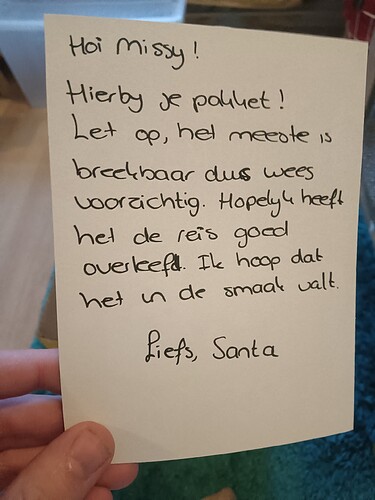 Hoi Missy!
Hierby je pakket!
Let op, het meeste is
breekbaar dus wees
voorzichtig. Hopelyk heeft
het de reis goed
overleefd. Ik hoop dat
het in de smaak valt.
Liefs, Santa